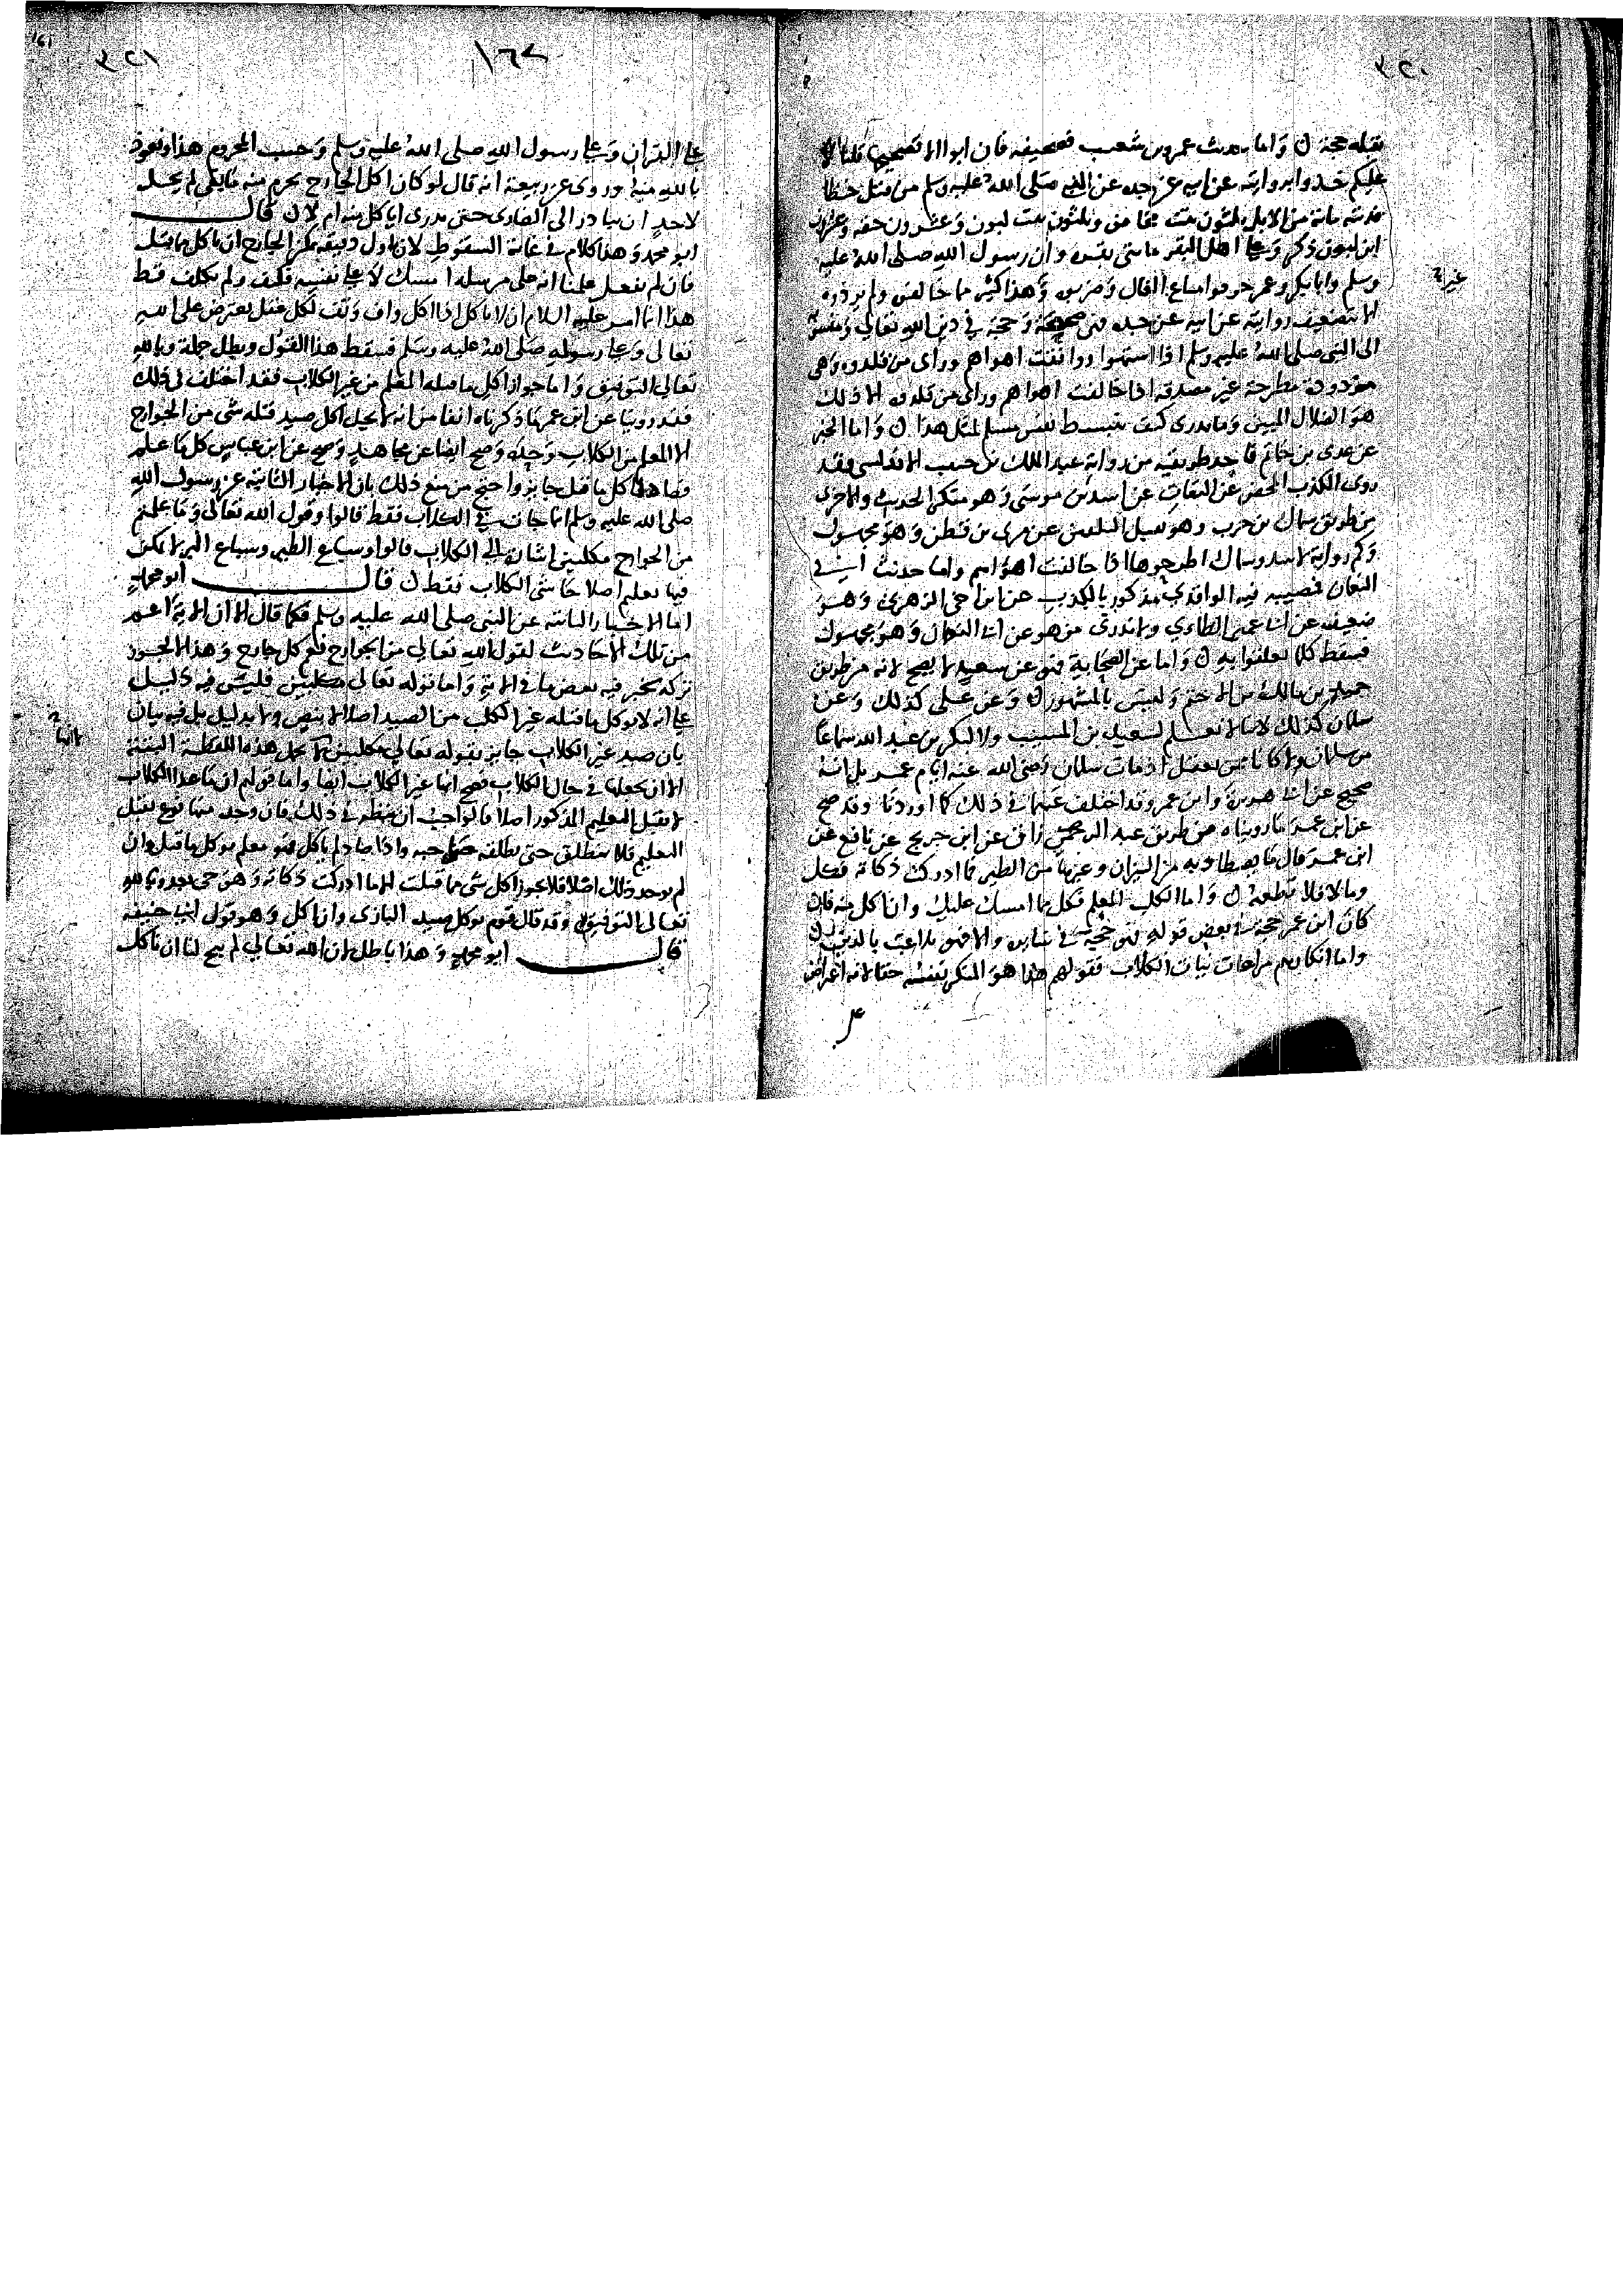 ٣٢٠
نقله حجة ن وَاما حديث عمرو بن شعيب فصحيفه فان ابوا الا تصحيحها قلنا لا
عليكم خذوا بروايته عن ابيه عن جده عن النبي صَلى اللهُ عليه وسلم من قتل خطا
فديته مائة من الابل ثلثون بنت مخاض وثلثون بنت لبون وَعشرون حقه وعشرون
ابن لبون ذكر وَعلى اهل البقر مائتي بقره وان رسول الله صلى اللهُ عليه
وسلم وابا بكر وعمر حرقوا متاع الغال وَضربوه وَهذا كثير مما خالفوه ولم يرده
الا تضعيف روايته عن ابيه عن جده فهي صحيحة وَحجة في دين الله تعالى وينسب
الى النبي صلى اللهُ عليه وسلم اذا اشتهوا ووافقت اهواهم وراى من قلدوه وَهى
مردودة مطرحة غير مصدقه اذا خالفت اهواهم وراى من قلدوه الا ذلك
هو الضلال المبين وَما ندرى كيف تنبسط نفس مسلم لمثل هذا ن وَاما الخبر
عن عدى بن حاتم فاحد طريقيه من رواية عبد الملك بن حبيب الاندلسى وقد
روى الكذب المحض عن الثقات عن اسد بن موسى وَهو منكر الحديث والاخرى
من طريق سماك بن حرب وهو يقبل التلقين عن مرى بن قطن وَهو مجهول
وَكم رواية لاسد وسماك اطرحوها اذا خالفت اهواهم واما حديث ابي
النعمان فمصيبه فيه الواقدي مذكور بالكذب عن ابن اخى الزهري وَهوَ
ضعيف عن ابى عمير الطاءي ولا ندرى من هو عن ابى النعمان وَهو مجهول
فسقط كلما تعلقوا به ن وَاما عن الصحابة فهو عن سعيد لا يصح لانه من طريق
حميد بن مالك بن الاختم وَليس بالمشهور ن وَعن على كذلك وَعن
سلمان كذلك لاننا لا نعلم لسعيد بن المسيب ولا لبكر بن عبد الله سماعًا
من سلمان ولا كانا ممن يعقل اذ مات سلمان رَضى الله عنه ايام عمر بل انه
صحيح عن ابي هريرة وابن عمر وقد اختلف عنهما في ذلك كما اوردنا وقد صح
عن ابن عمر ما رويناه من طريق عبد الرزاق عن ابن جريج عن نافع عن
ابن عمر قال ما يصطاد به من البيزان وغيرها من الطير فما ادركت ذكاته فكل
وما لا فلا تطعمه ن وَاما الكلب المعلم فكل مما امسك عليك وان اكل منه فان
كان ابن عمر حجة في بعض قوله فهى حجة في سايره والا فهو تلاعب بالدين ن
واما انكارهم مراعات نيات الكلاب فقولهم هذا هو المنكر بنفسه حقا لانه اعتراض
غيره
على
٣٢١
١٦٢
161
على القران وَعلى رسول الله صلى اللهُ عليه وَسلم وَحسب المحروم هذا ونعوذ
بالله منه وروى عن ربيعة انه قال لو كان اكل الجارح يحرم منه ما بقى لم يحل
لاحدٍ ان يبادر الى الضارى حتى يدرى اياكل منه ام لا ن قال
ابو محمد وَهذا كلام في غاية السقوط لان اول دقيقة يمكن الجارح ان ياكل مما قتل
فان لم يفعل علمنا انه على مرسله امسك لا على نفسه فكيف ولم يكلف قط
هذا انما امر عليه السلام ان لا ياكل اذا اكل واف وَتف لكل من يعترض على الله
تعالى وَعلى رسوله صَلى اللهُ عليه وسَلم فسقط هذا القول وبطل جملة وبالله
تعالى التوفيق وَاما جواز اكل ما قتله المعلم من غير الكلاب فقد اختلف في ذلك
فقد روينا عن ابن عمر ما ذكرناه انفا من انه لا يحل اكل صيد قتله شى من الجوارح
الا المعلم من الكلاب وَحده وَصح ايضا عن مجاهد وَصح عن ابن عباس كل ما علم
فصاد كل ما قتل جايز واحتج من منع ذلك بان الاخبار الثابته عن رسول الله
صلى الله عليه وسلم انما جات في الكلاب فقط قالوا وقول الله تعالى وَما علمتم
من الجوارح مكلبين اشارة الى الكلاب قالوا وسباع الطير وسباع البر لا يمكن
فيها تعليم اصلا حاشى الكلاب فقط ن قال ابو محمد
اما الاخبار الثابته عن النبي صلى الله عليه وسلم فكما قال الا ان الاية اعم
من تلك الاحاديث لقول الله تعالى من الجوارح فهو كل جارح وَهذا لا يجوز
تركه لخبر فيه بعض ما في الاية وَاما قوله تعالى مكلبين فليس فيه دليل
على انه لا يوكل ما قتله غير الكلب من الصيد اصلا لا بنص ولا بدليل بل فيه بيان
بان صيد غير الكلاب جايز بقوله تعالى مكلبين لا تحمل هذه اللفظة البتة
الا ان يجعلها في حال الكلاب فصح انها غير الكلاب ايضا واما قولهم ان ما عدا الكلاب
لا يقبل التعليم المذكور اصلا فالواجب ان ينظر في ذلك فان وجد منها نوع يقبل
التعليم فلا ينطلق حتى يطلقه صاحبه واذا صاد لم ياكل فهو معلم يوكل ما قتل وان
لم يوجد ذلك اصلا فلا يجوز اكل شى مما قتلت الا ما ادركت ذكاته وَهو حى بعد وبالله
تعالى التوفيق وقد قال قوم يوكل صيد البازى وان اكل وَهو قول ابى حنيفه
قال ابو محمد وَهذا باطل لان الله تعالى لم يبح لنا ان ناكل